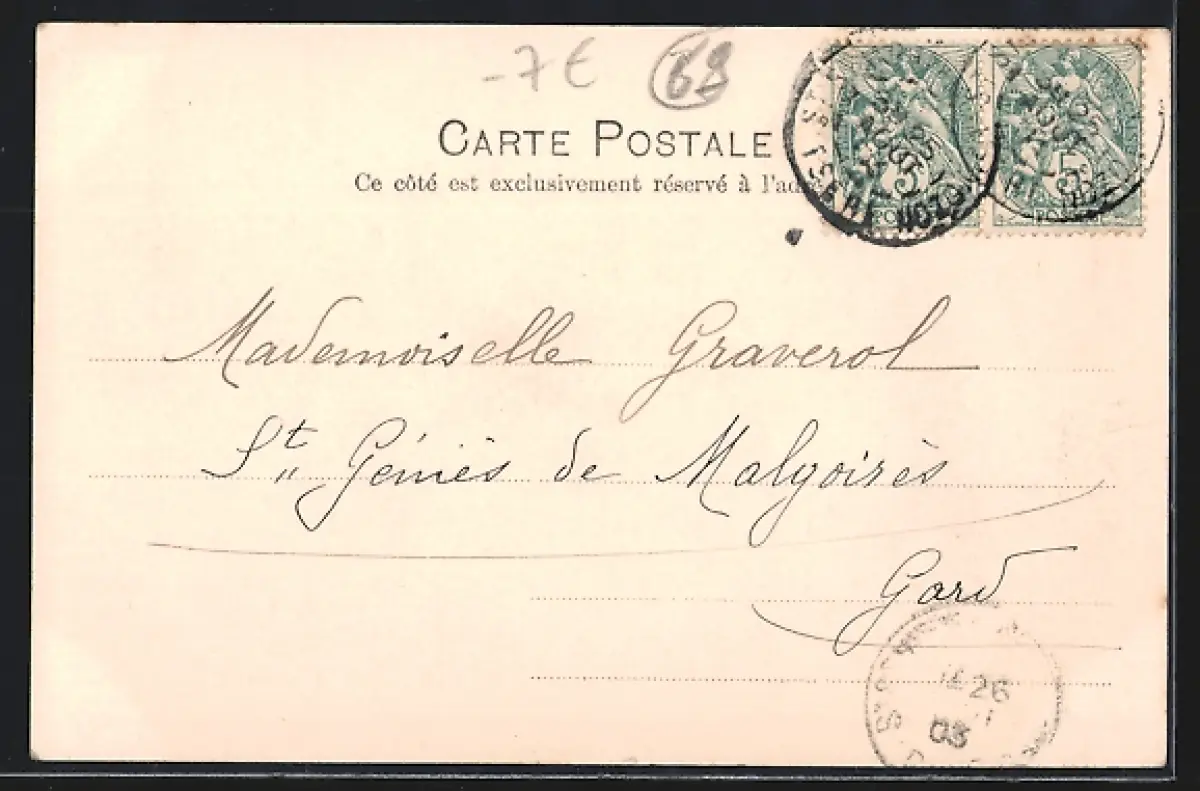 -7 €
CARTE POSTALE
Ce côté est exclusivement réservé à l'ad
5 5
Mademoiselle Graverol
St Géniès de Malgoirès
Gard
26
03